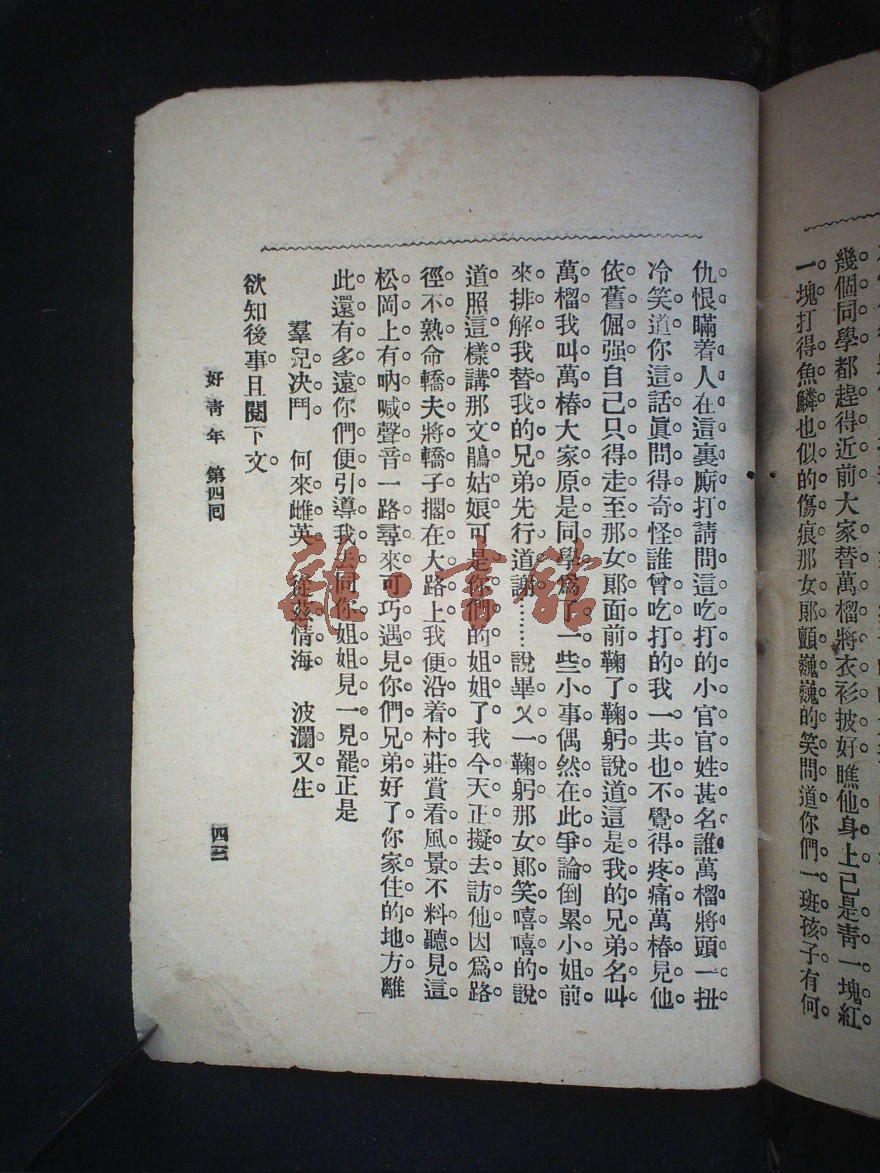 幾個同學都趕得近前大家替萬榴將衣衫披好瞧他身上已是靑一塊紅
一塊打得魚鱗也似的傷痕那女郞顫巍巍的笑問道你們一班孩子有何
仇恨瞞着人在這裏廝打請問這吃打的小官官姓甚名誰萬榴將頭一扭
冷笑道你這話眞問得奇怪誰曾吃打的我一共也不覺得疼痛萬椿見他
依舊倔强自己只得走至那女郞面前鞠了鞠躬說道這是我的兄弟名叫
萬榴我叫萬椿大家原是同學爲了一些小事偶然在此爭論倒累小姐前
來排解我替我的兄弟先行道謝……說畢又一鞠躬那女郞笑嘻嘻的說
道照這樣講那文鵑姑娘可是你們的姐姐了我今天正擬去訪他因爲路
徑不熟命轎夫將轎子擱在大路上我便沿着村莊賞看風景不料聽見這
松岡上有吶喊聲音一路尋來可巧遇見你們兄弟好了你家住的地方離
此還有多遠你們便引導我去同你姐姐見一見罷正是
羣兒決鬥　何來雌英　從茲情海　波瀾又生
欲知後事且閱下文
好靑年　第四回
四三
龍·書館